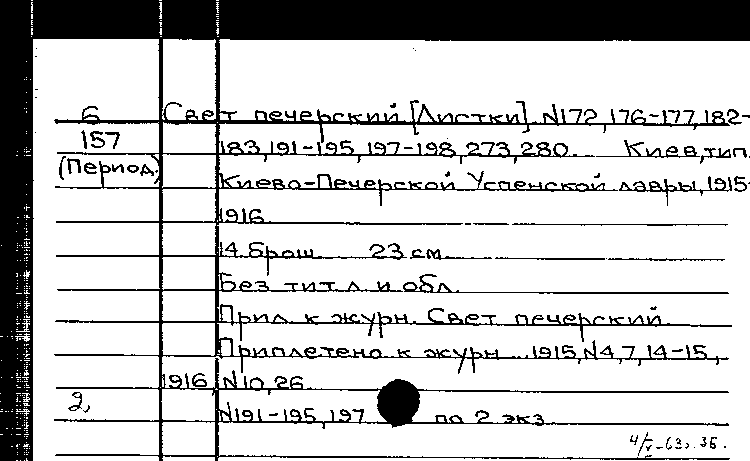 Б
157
(Период)
Свет печерский [Листки]. N172, 176-177, 182-
183, 191-195, 197-198, 273, 280. Киев, тип.
Киево-Печерской Успенской лавры, 1915-
1916.
14 брош. 23 см.
Без тит. л. и обл.
Прил. к журн. Свет печерский.
Приплетено к журн. 1915, N4, 7, 14-15,
1916, N10, 26.
2,
N191-195, 197 по 2 экз.